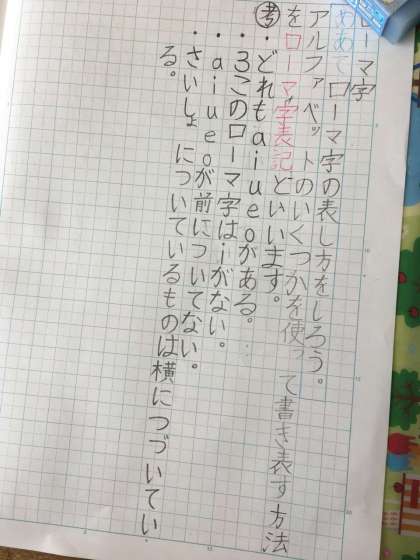 ローマ字
めあてローマ字の表し方をしろう。
アルファベットのいくつかを使って書き表す方法
をローマ字表記といいます。
考・どれもaiueoがある。
・3このローマ字はiがない。
・aiueoが前についてない。
・さいしょについているものは横につづいてい
る。